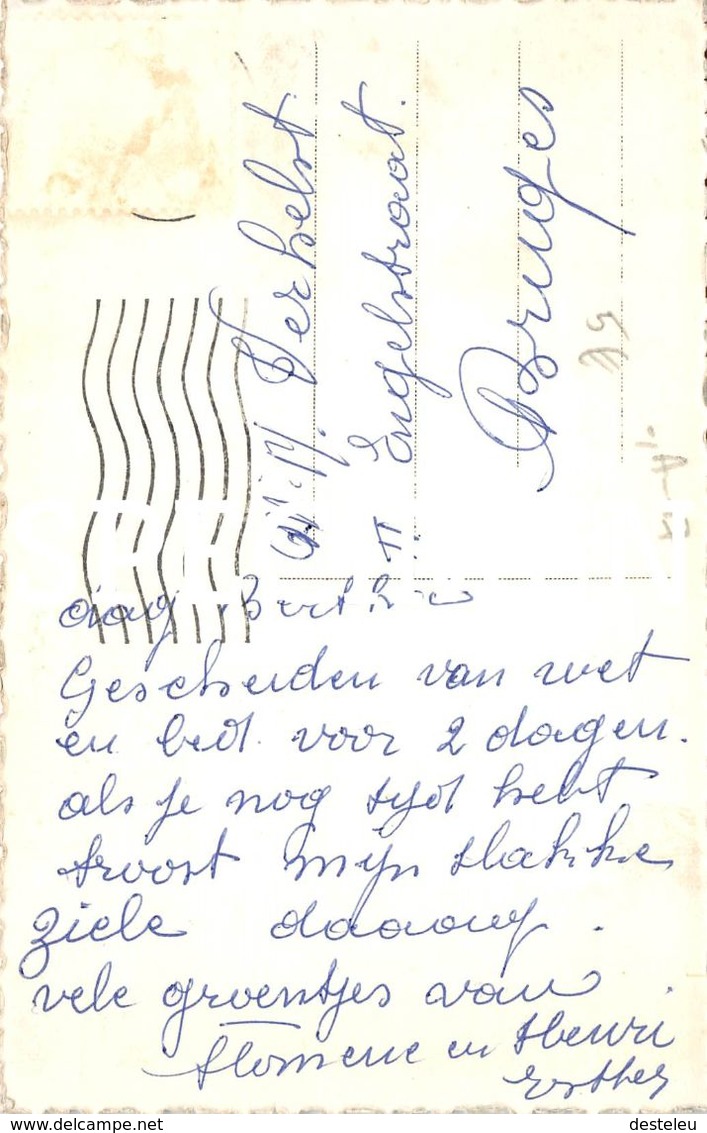 Verhelst
Engelstraat.
Bruges
dag
Gescheiden van wet
en bed. voor 2 dagen.
als je nog tyd hebt
troost mijn
ziele
vele groentjes van
en Henri
Esther
delcampe.net
desteleu